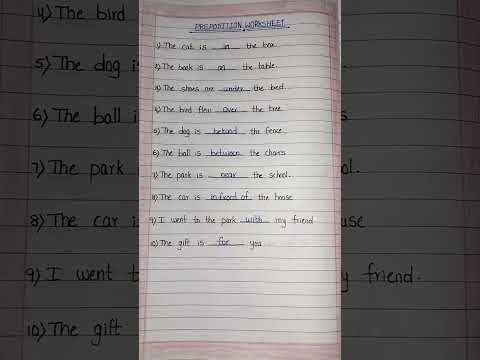 PREPOSITION WORKSHEET
1) The cat is in the box.
2) The book is on the table.
3) The shoes are under the bed.
4) The bird flew over the tree.
5) The dog is behind the fence.
6) The ball is between the chairs
7) The park is near the school.
8) The car is infront of the house
9) I went to the park with my friend.
10) The gift is for you
4) The bird
5) The dog is
6) The ball is
7) The park
8) The car is
9) I went to
10) The gift
ol.
use
my friend.